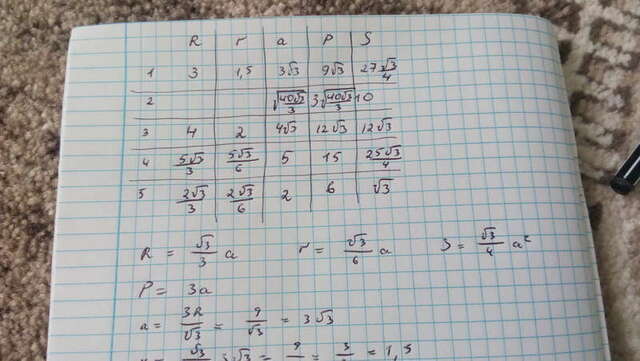 R r a P S
1 3 1,5 3√3 9√3 27√3/4
2 √(40√3/3) 3√(40√3/3) 10
3 4 2 4√3 12√3 12√3
4 5√3/3 5√3/6 5 15 25√3/4
5 2√3/3 2√3/6 2 6 √3
R = √3/3 a r = √3/6 a S = √3/4 a²
P = 3a
a = 3R/√3 = 9/√3 = 3√3
3√3 = 9 = 3 = 1,5